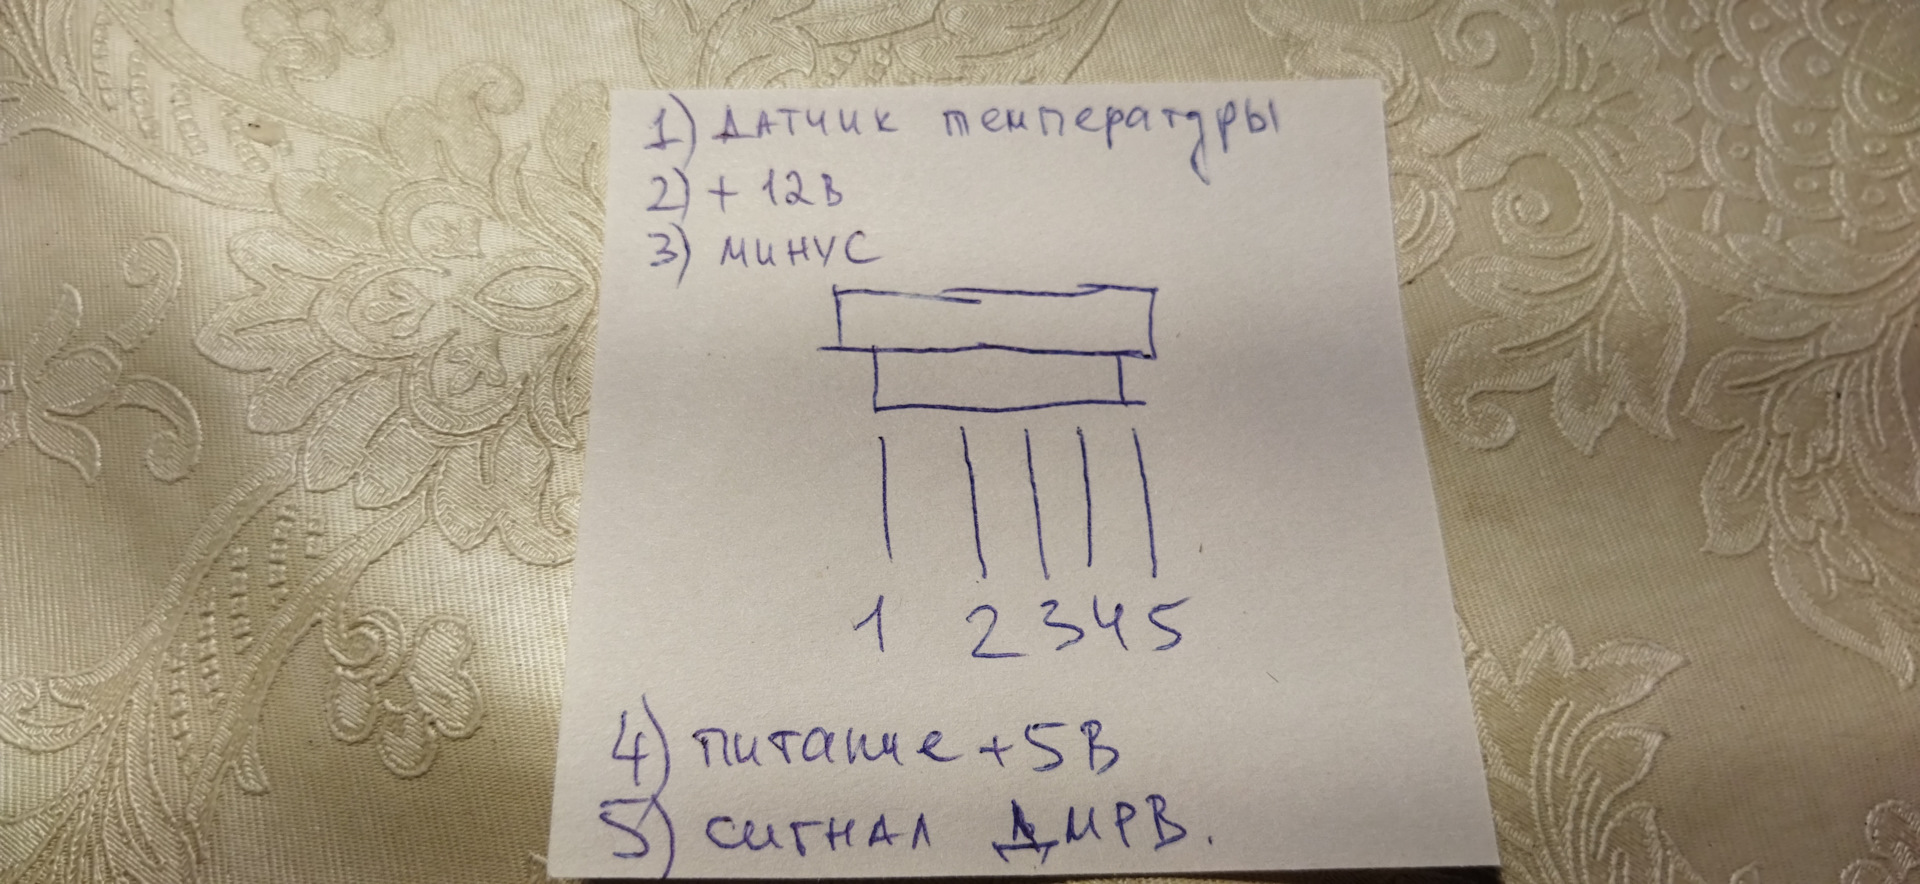 1) Датчик температуры
2) + 12В
3) минус
1 2 3 4 5
4) питание +5В
5) сигнал ДМРВ.